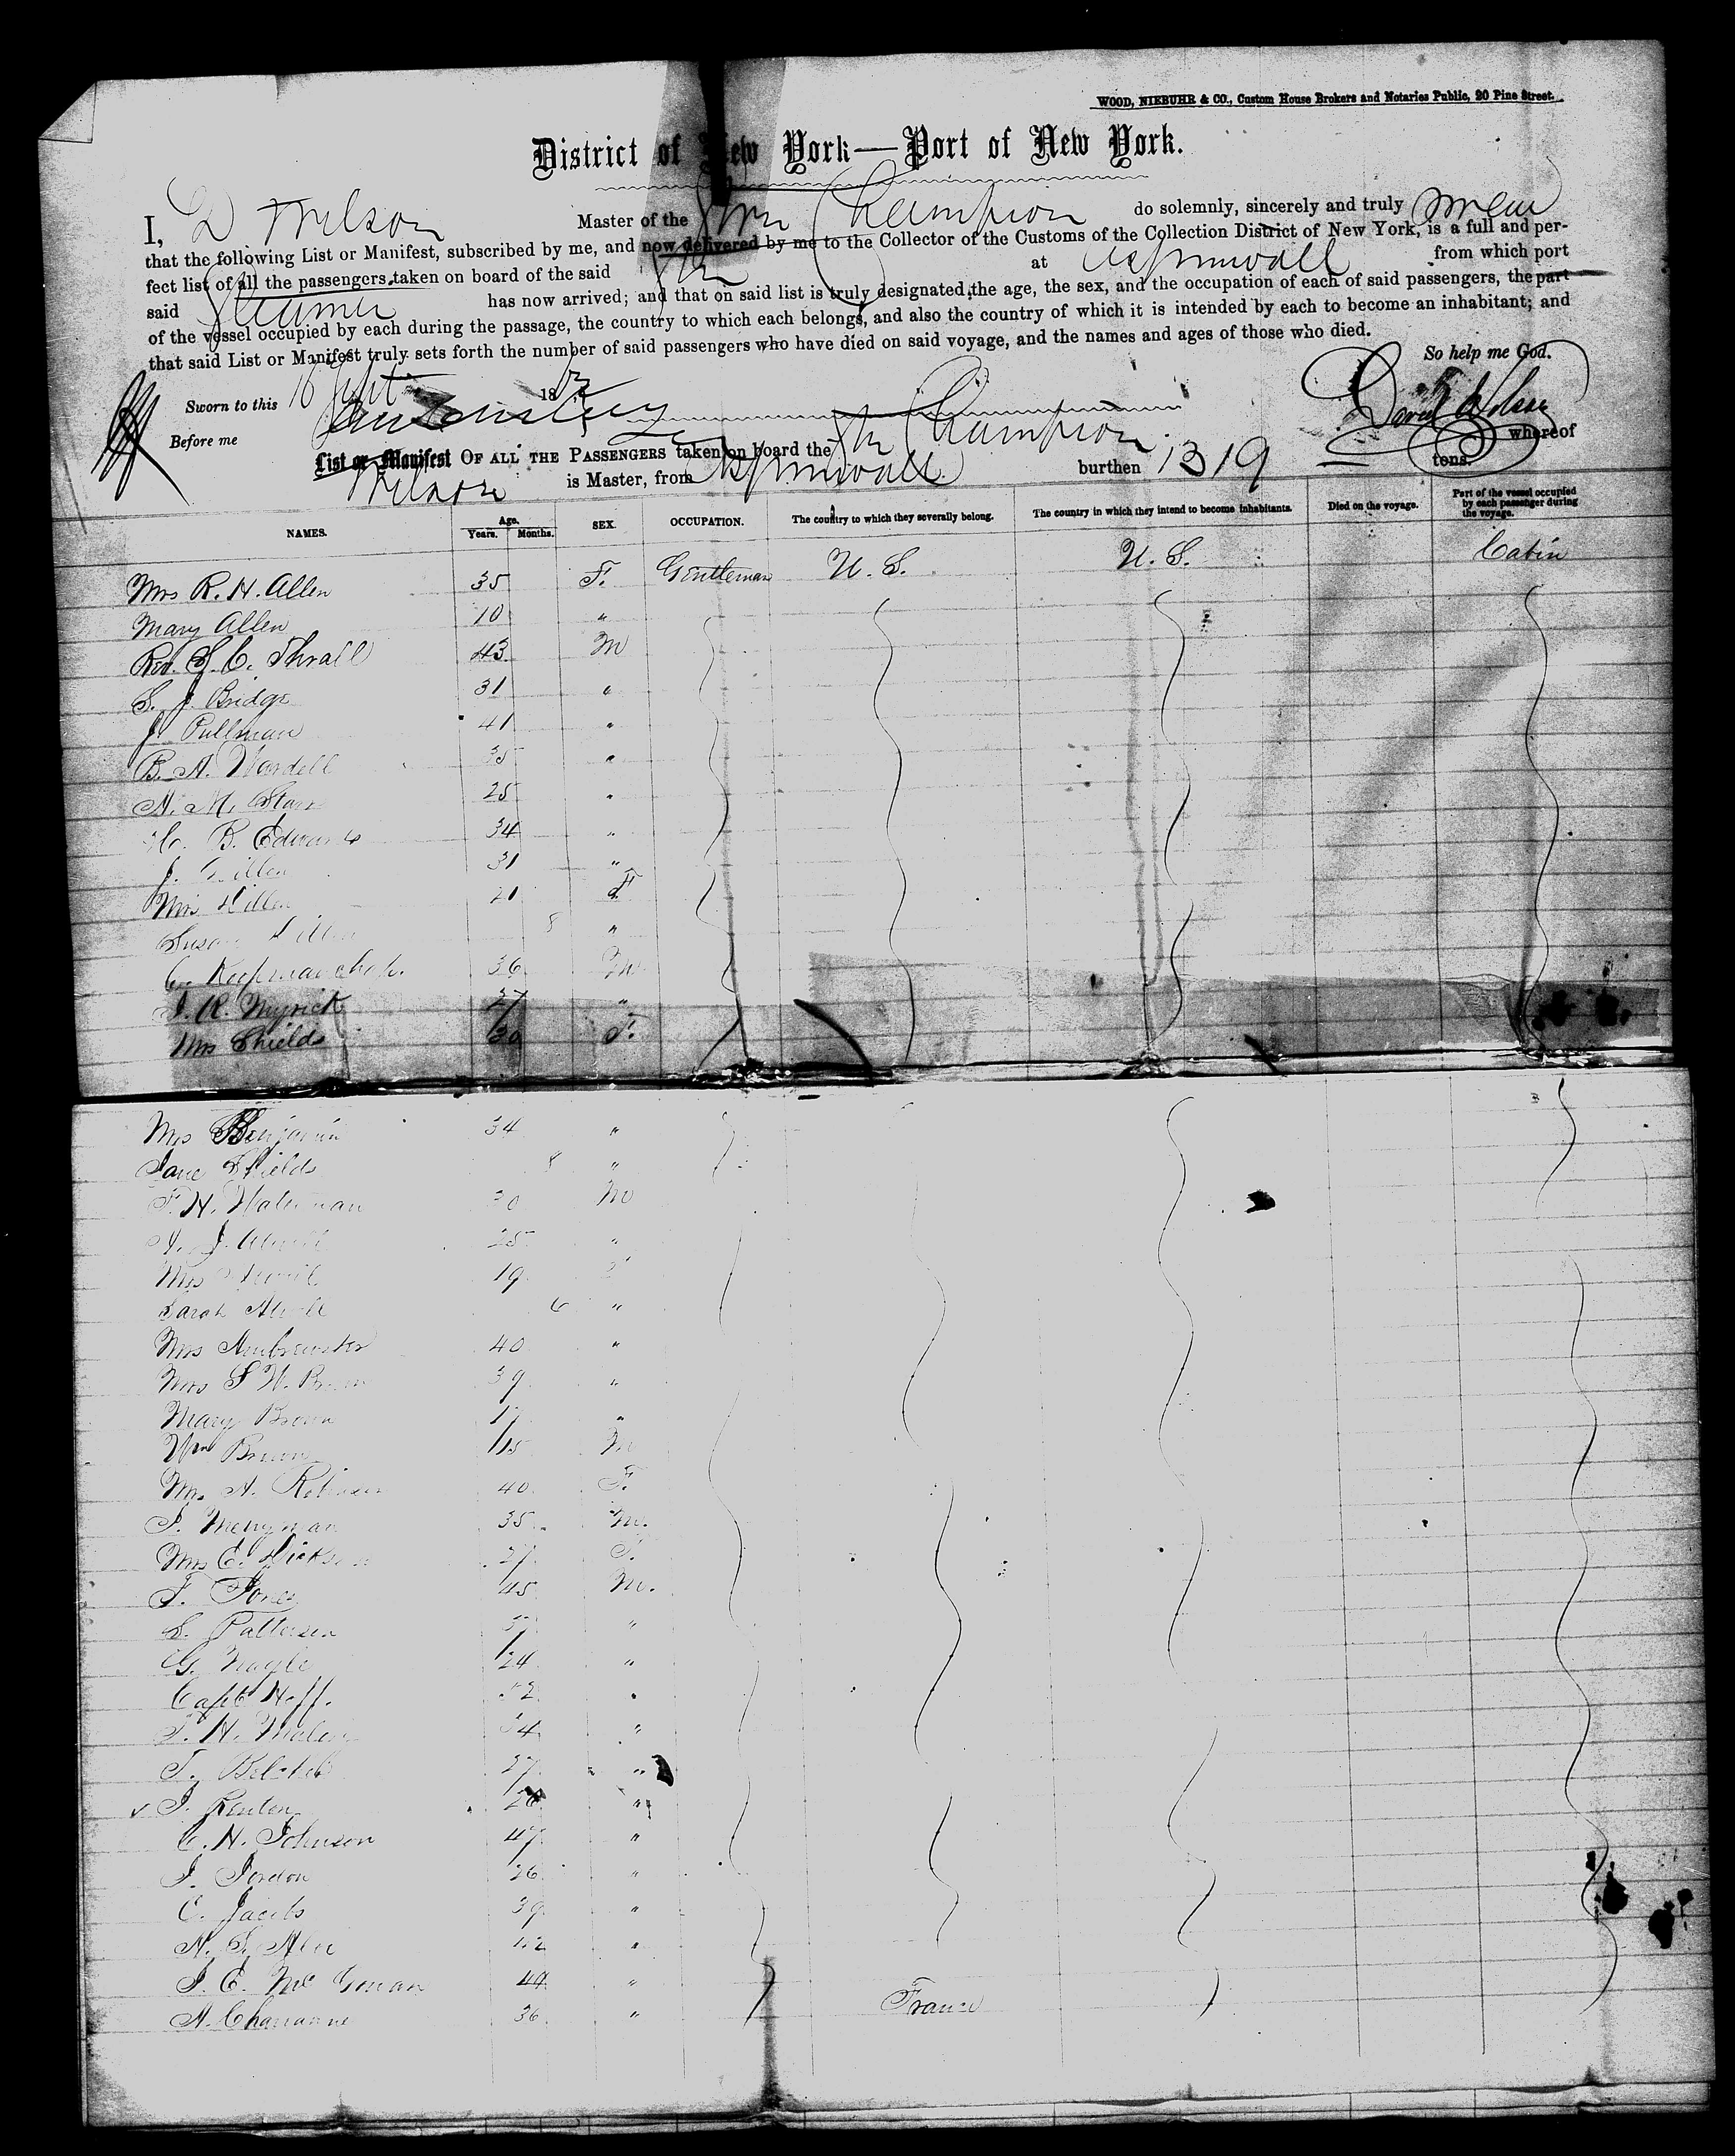 WOOD, NIEBUHR & CO., Custom House Brokers and Notaries Public, 20 Pine Street.
District of New York—Port of New York.
I, D Wilson Master of the Str Champion do solemnly, sincerely and truly swear
that the following List or Manifest, subscribed by me, and now delivered by me to the Collector of the Customs of the Collection District of New York, is a full and per-
fect list of all the passengers taken on board of the said Str at Aspinwall from which port
said Steamer has now arrived; and that on said list is truly designated the age, the sex, and the occupation of each of said passengers, the part
of the vessel occupied by each during the passage, the country to which each belongs, and also the country of which it is intended by each to become an inhabitant; and
that said List or Manifest truly sets forth the number of said passengers who have died on said voyage, and the names and ages of those who died.
So help me God.
Sworn to this 16 Sept 18
Before me
List or Manifest OF ALL THE PASSENGERS taken on board the Str Champion whereof
Wilson is Master, from Aspinwall burthen 1319 tons.
NAMES. Age. Years. Months. SEX. OCCUPATION. The country to which they severally belong. The country in which they intend to become inhabitants. Died on the voyage. Part of the vessel occupied by each passenger during the voyage.
Mrs R. H. Allen 35 F. Gentleman U. S. U. S. Cabin
Mary Allen 10 "
Rev. S. C. Thrall 43 M
S. J. Bridge 31 "
J. Pullman 41 "
B. A. Wardell 35 "
A. M. Starr 25 "
B. Edwards 34 "
J. 31 "
Mrs Dillen 21 F
Susan 8 "
C. 36 M
J. R. Myrick 27 "
Mrs Shields 30 F.
Mrs Benjamin 34 "
Jane Shields 8 "
F. H. Waterman 30 M
A. J. 25 "
Mrs 19 F
Sarah 6 "
Mrs Armbrewster 40 "
Mrs S W. Brown 39 "
Mary Brown 17 "
Wm Brown 15 M
Mrs A. Robinson 40 F.
J. Merryman 35 M.
Mrs E. Dickson 27 F.
F. Jones 45 M.
S. Patterson "
G. Nagle 24 "
Capt Neff. 52 "
T. H. 34 "
T. 27 "
J. Renten 26 "
C. H. Johnson 47 "
J. Jordon 26 "
C. Jacobs 39 "
A. 42 "
J. E. Mc Gowan 49 "
A. Chavanne 36 " France